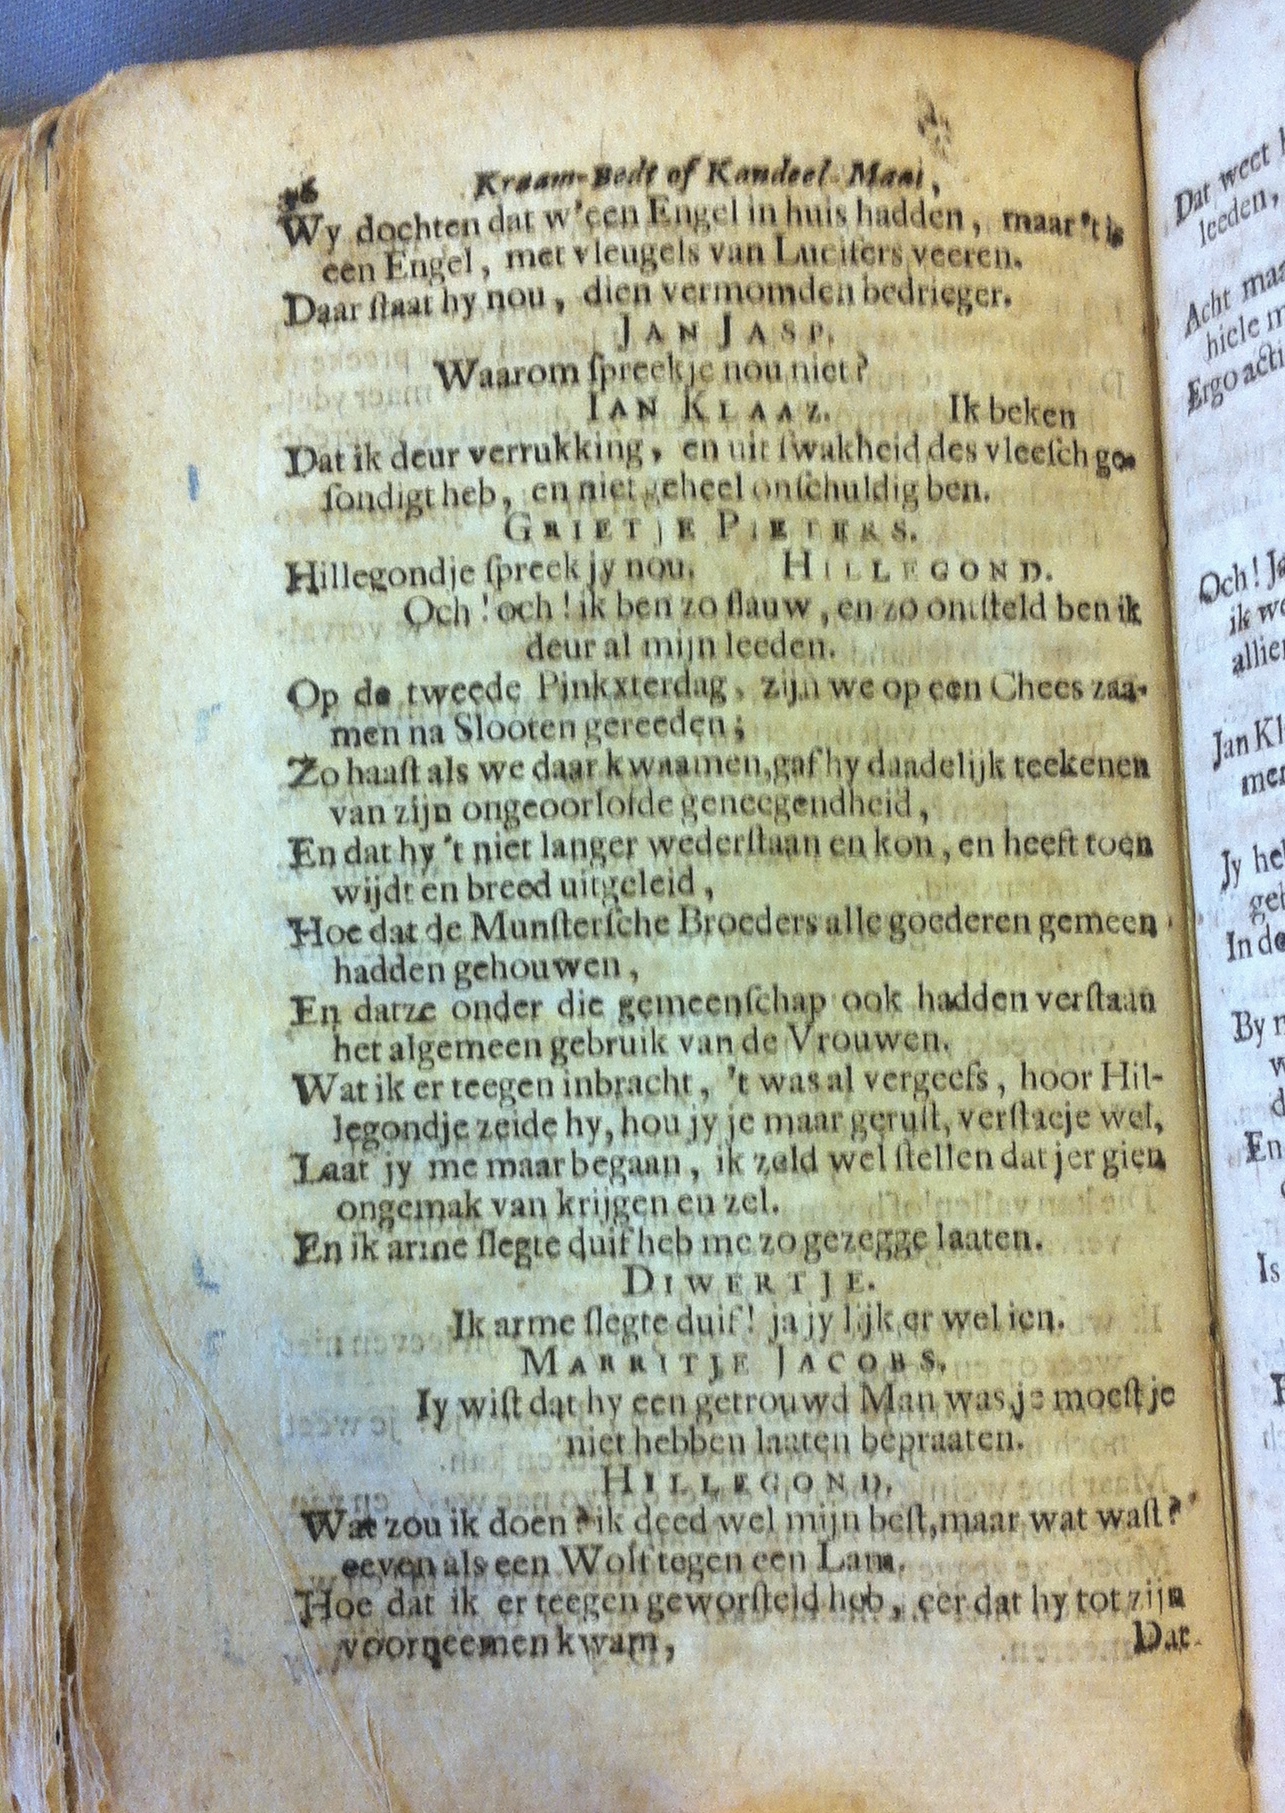 Kraam-Bedt of Kandeel-Maal,
Wy dochten dat w'een Engel in huis hadden, maar 't is
een Engel, met vleugels van Lucifers veeren.
Daar ſtaat hy nou, dien vermomden bedrieger.
JAN JASP.
Waarom ſpreekje nou niet?
IAN KLAAZ. Ik beken
Dat ik deur verrukking, en uit ſwakheid des vleeſch ge-
ſondigt heb, en niet geheel onſchuldig ben.
GRIETJE PIETERS.
Hillegondje ſpreek jy nou. HILLEGOND.
Och! och! ik ben zo ſlauw, en zo ontſteld ben ik
deur al mijn leeden.
Op de tweede Pinkxterdag, zijn we op een Chees zaa-
men na Slooten gereeden;
Zo haaſt als we daar kwaamen, gaf hy daadelijk teekenen
van zijn ongeoorlofde geneegendheid,
En dat hy 't niet langer wederſtaan en kon, en heeft toen
wijdt en breed uitgeleid,
Hoe dat de Munſterſche Broeders alle goederen gemeen
hadden gehouwen,
En datze onder die gemeenſchap ook hadden verſtaan
het algemeen gebruik van de Vrouwen.
Wat ik er teegen inbracht, 't was al vergeefs, hoor Hil-
legondje zeide hy, hou jy je maar geruſt, verſtaeje wel,
Laat jy me maar begaan, ik zeld wel ſtellen dat jer gien
ongemak van krijgen en zel.
En ik arme ſlegte duif heb me zo gezegge laaten.
DIWERTJE.
Ik arme ſlegte duif! ja jy lijk er wel ien.
MARRITJE JACOBS.
Iy wiſt dat hy een getrouwd Man was, je moeſt je
niet hebben laaten bepraaten.
HILLEGOND.
Wat zou ik doen? ik deed wel mijn beſt, maar wat waſt?
eeven als een Wolf tegen een Lam.
Hoe dat ik er teegen geworſteld heb, eer dat hy tot zijn
voorneemen kwam, Dat
Dat weet
leeden,
Acht
hiele
Ergo
Och!
ik
Jan
Jy
In
By
En
Is